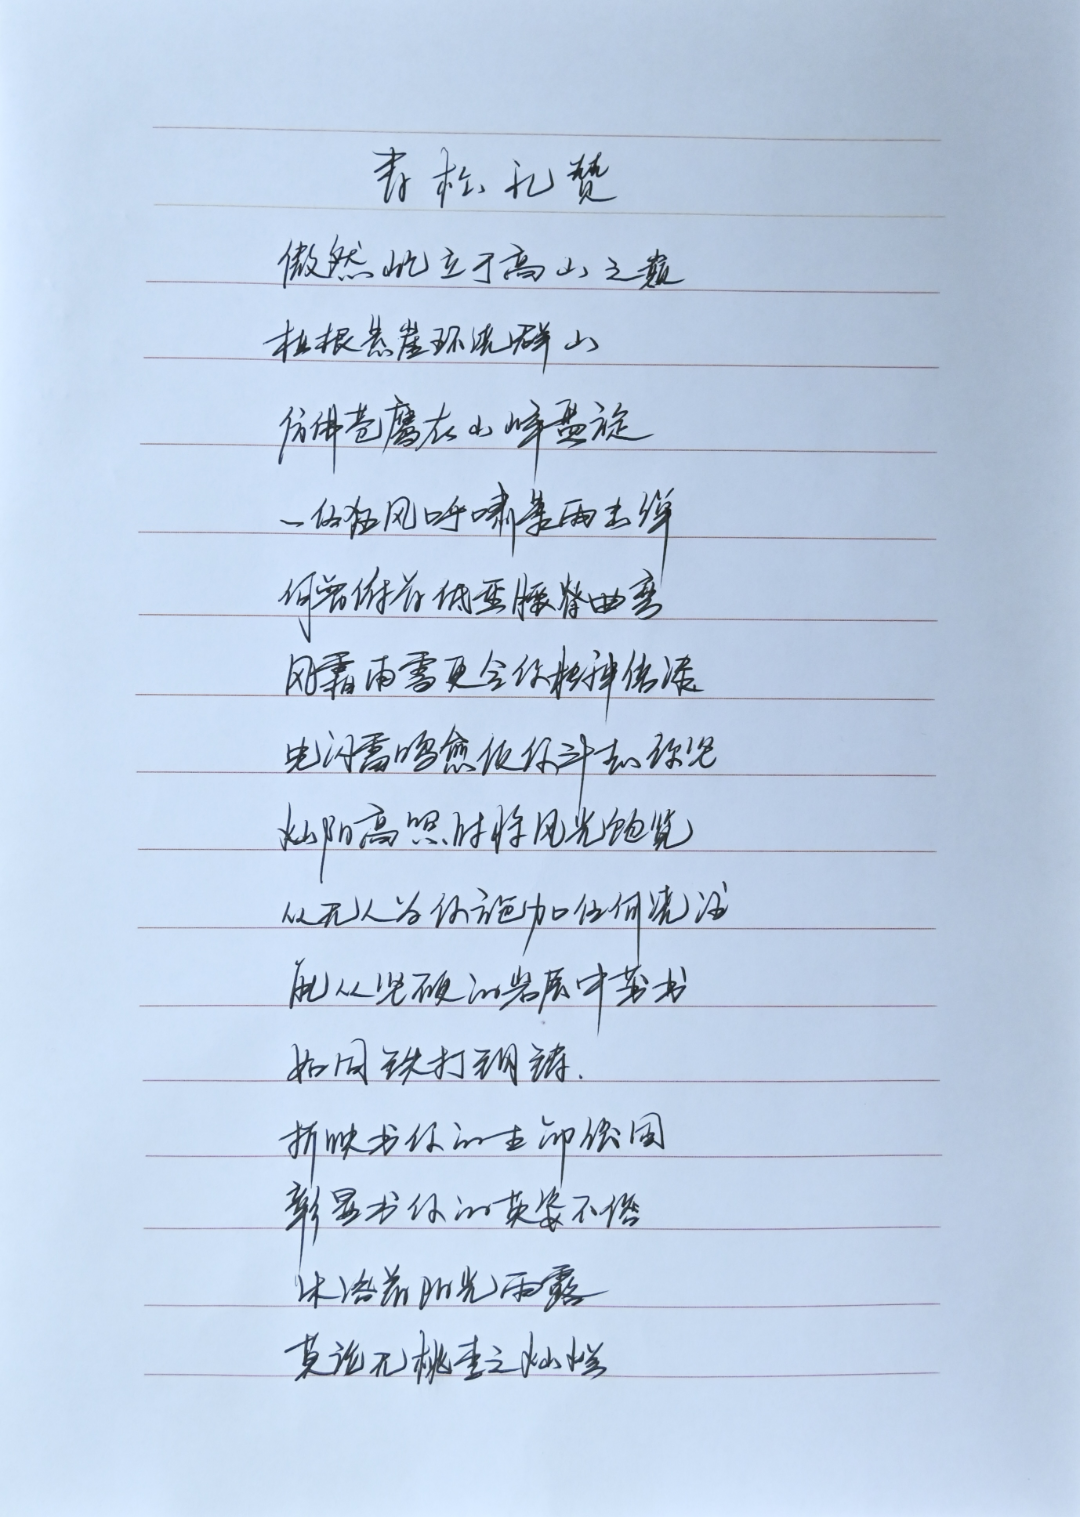 青松礼赞
傲然屹立于高山之巅
植根悬崖环视群山
仿佛苍鹰在山峰盘旋
一任狂风呼啸暴雨击弹
何曾俯首低垂腰脊曲弯
风霜雨雪更令你精神倍添
电闪雷鸣愈使你斗志弥坚
灿阳高照时将风光饱览
从无人为你施加任何浇灌
能从坚硬的岩层中茁出
如同铁打铜铸.
折映出你的生命倔固
彰显出你的英姿不俗
沐浴着阳光雨露
莫说无桃李之灿烂